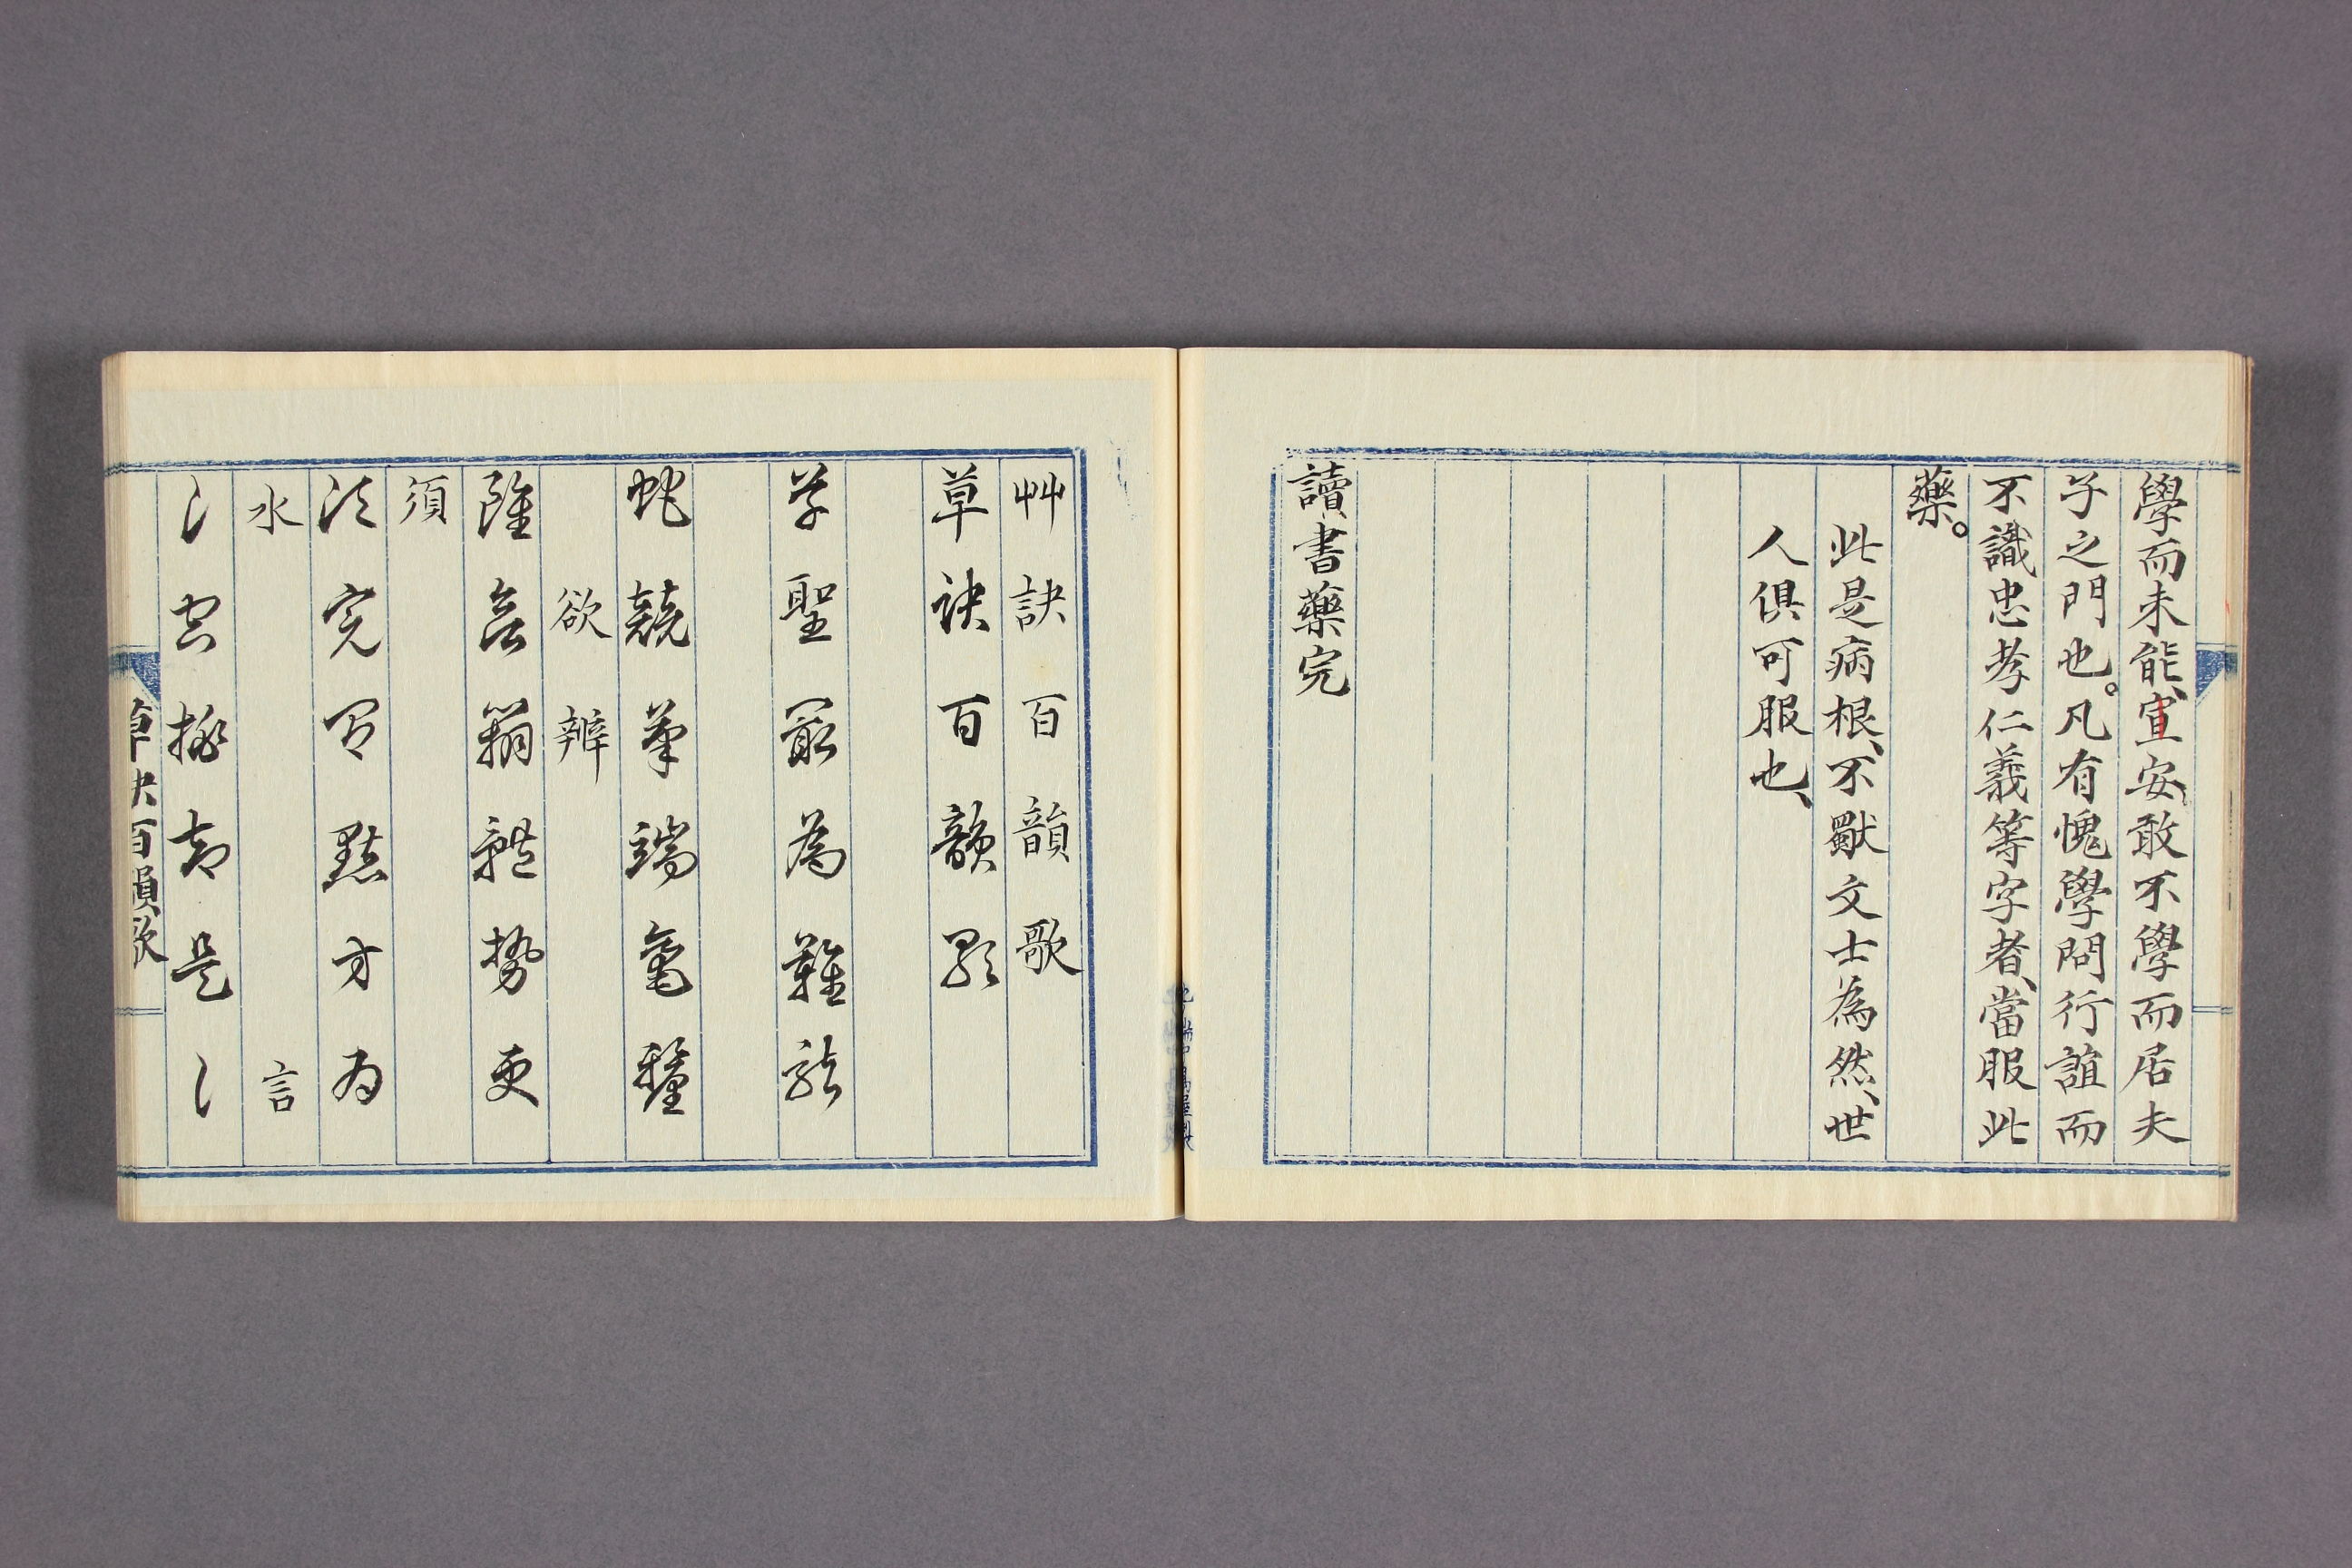 學而未能、宣安敢不學而居夫
子之門也。凡有愧學問行誼而
不識忠孝仁義等字者、當服此
藥。
此是病根、不獸文士為然、世
人俱可服也、
讀書藥完
艸訣百韻歌
草訣百韻歌
草聖最為難龍
蛇競筆端毫釐
欲辨
雖欲辨體勢更
須
須完有點方為
水 言
水空挑却是言
草訣百韻歌